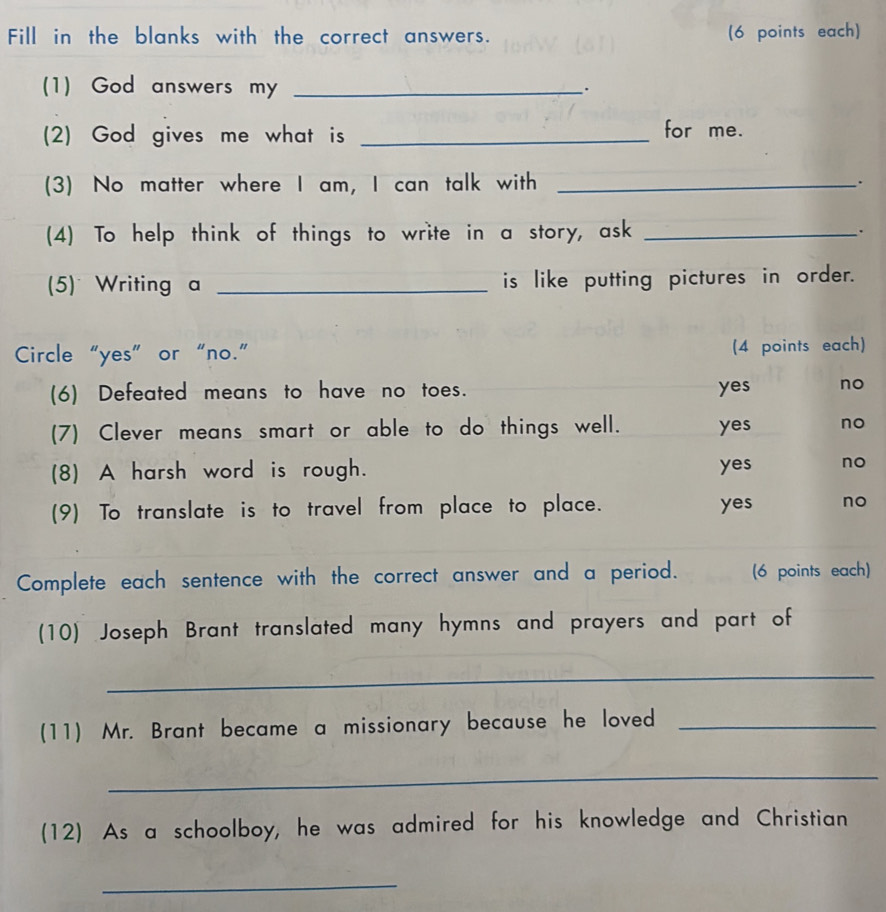 Fill in the blanks with the correct answers. (6 points each)
(1) God answers my ____________.
(2) God gives me what is ____________ for me.
(3) No matter where I am, I can talk with ____________.
(4) To help think of things to write in a story, ask ____________.
(5) Writing a ____________ is like putting pictures in order.
Circle "yes" or "no." (4 points each)
(6) Defeated means to have no toes. yes no
(7) Clever means smart or able to do things well. yes no
(8) A harsh word is rough. yes no
(9) To translate is to travel from place to place. yes no
Complete each sentence with the correct answer and a period. (6 points each)
(10) Joseph Brant translated many hymns and prayers and part of
____________
(11) Mr. Brant became a missionary because he loved ____________
____________
(12) As a schoolboy, he was admired for his knowledge and Christian
____________